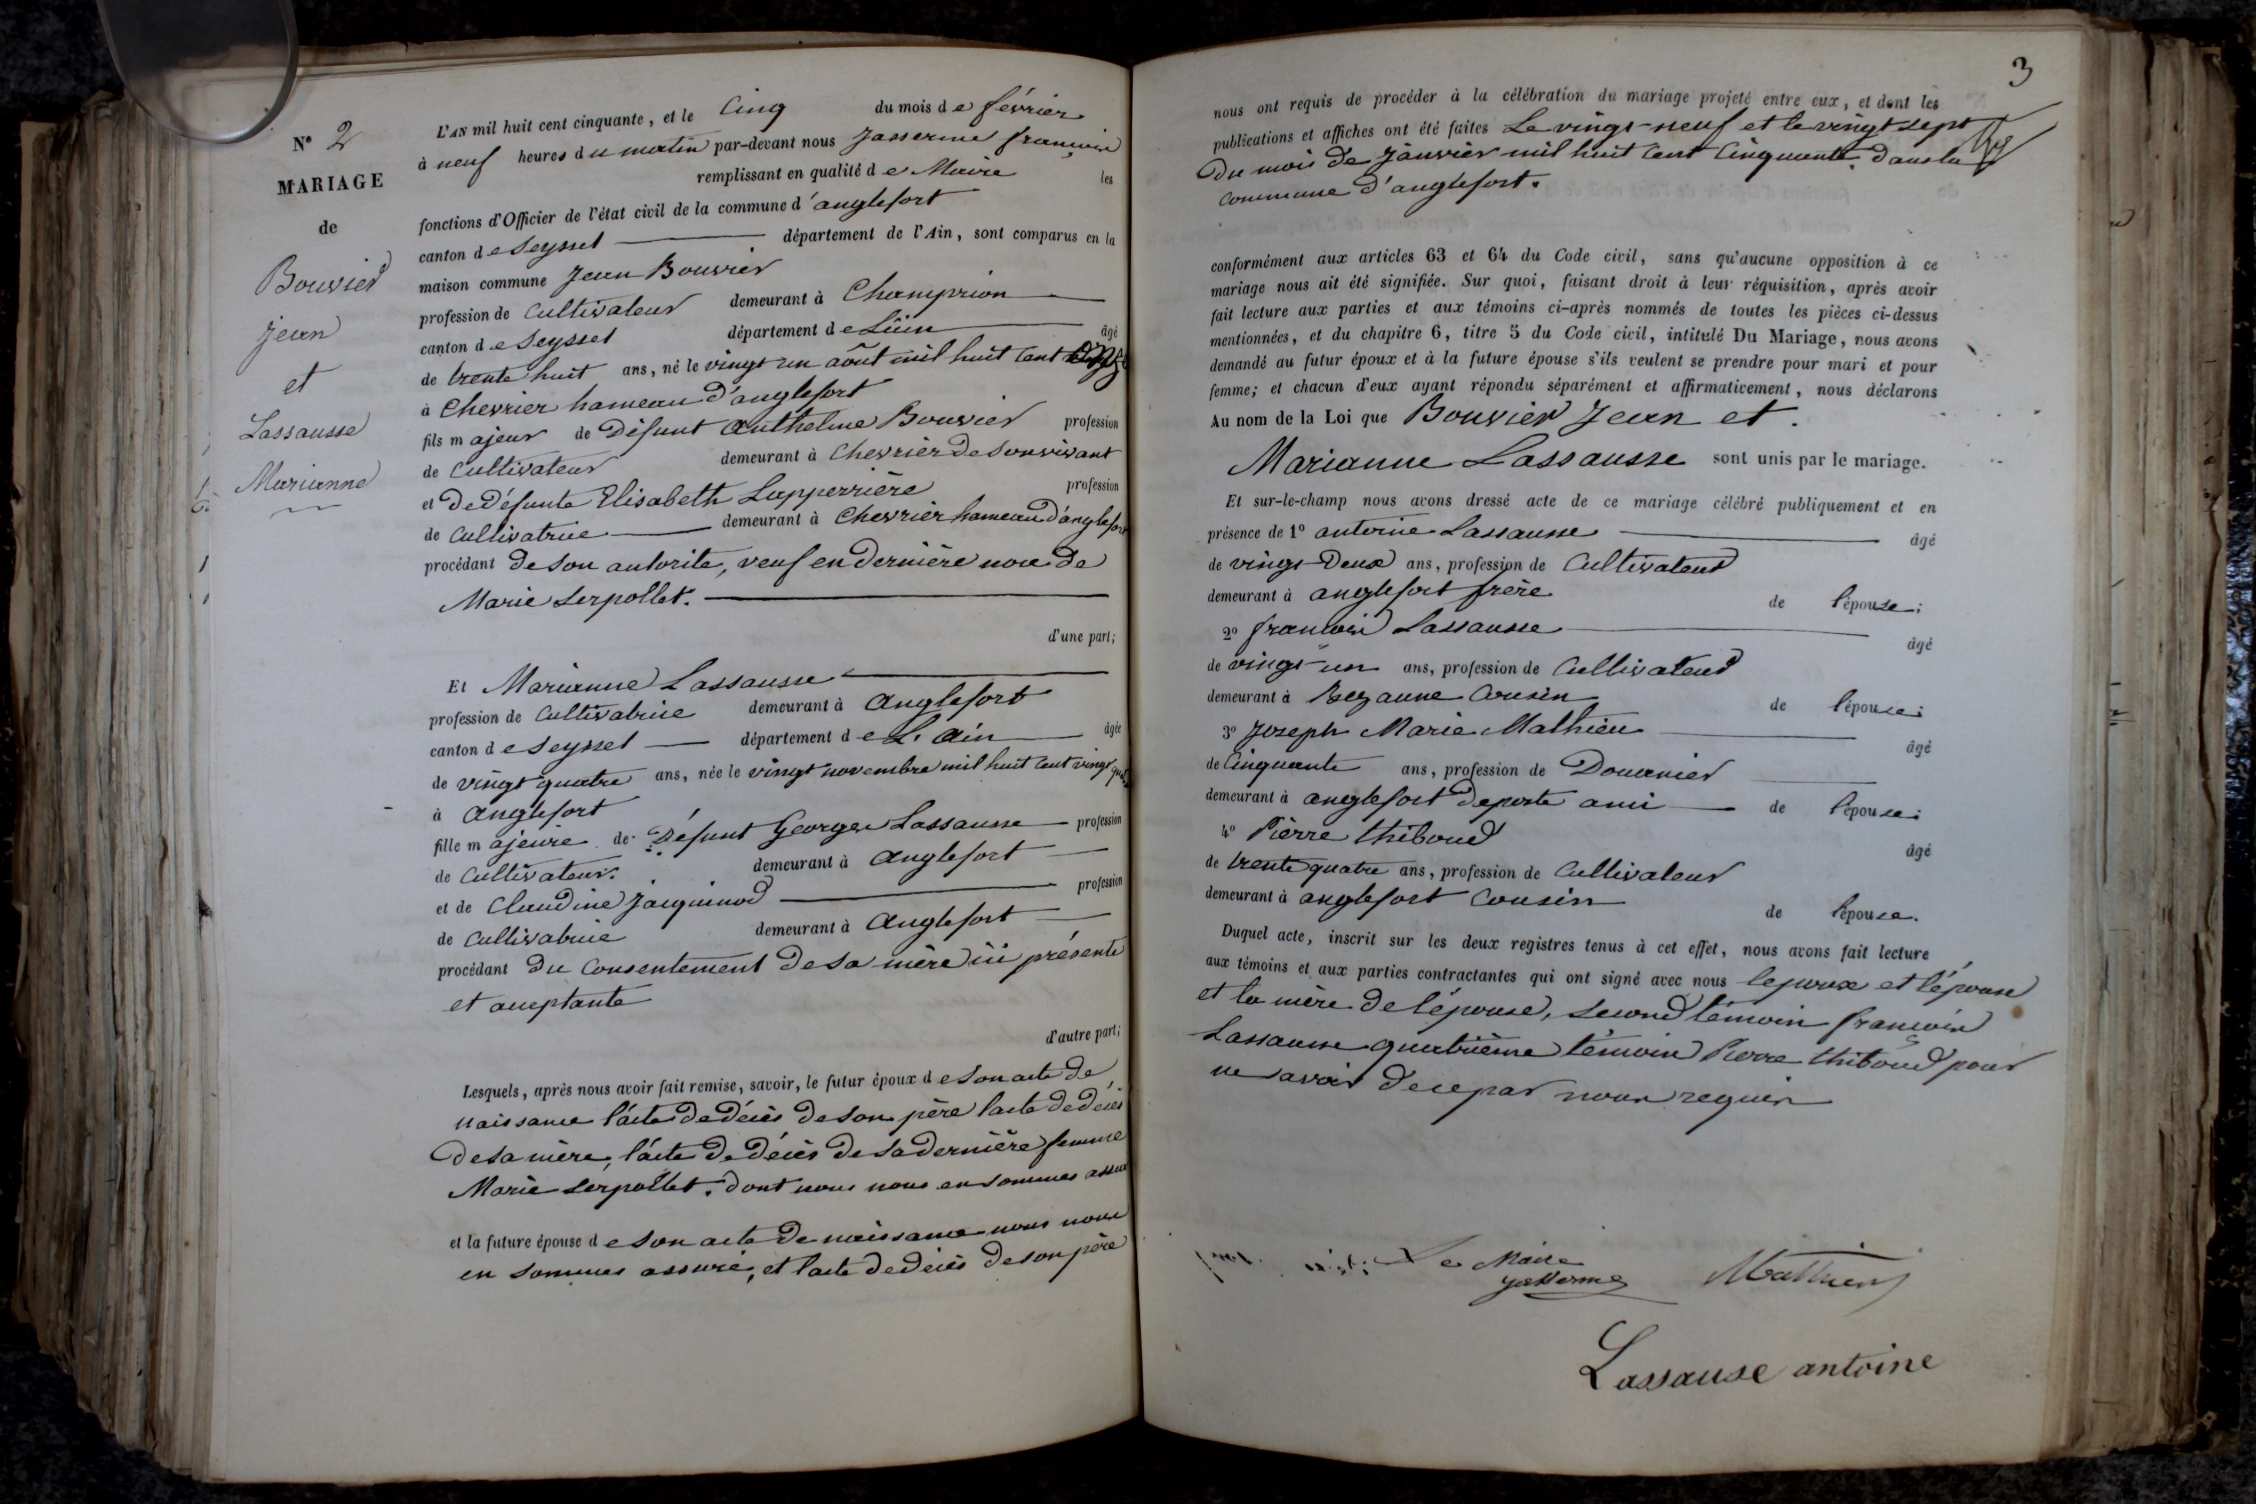 N° 2
MARIAGE
de
Bouvier
Jean
et
Lassausse
Marianne
L'AN mil huit cent cinquante, et le Cinq du mois de février
à neuf heures du matin par-devant nous Jasserme françois
remplissant en qualité de Maire les
fonctions d'Officier de l'état civil de la commune d'anglefort
canton de Seyssel département de l'Ain, sont comparus en la
maison commune Jean Bouvier
profession de Cultivateur demeurant à Champrion
canton de Seyssel département de Lain âgé
de trente huit ans, né le vingt un août mil huit cent onze
à Chevrier hameau d'anglefort
fils majeur de Défunt Anthelme Bouvier profession
de Cultivateur demeurant à Chevrier de son vivant
et De Défunte Elisabeth Lapperrière profession
de Cultivatrice demeurant à Chevrier hameau d'anglefort
procédant de son autorite, veuf en dernière noce de
Marie Serpollet.
d'une part;
Et Marianne Lassausse
profession de Cultivatrice demeurant à Anglefort
canton de Seyssel département de L'Ain âgée
de vingt quatre ans, née le vingt novembre mil huit cent vingt
à Anglefort
fille majeure de Défunt George Lassausse profession
de Cultivateur. demeurant à Anglefort
et de Claudine Jacquinod profession
de Cultivatrice demeurant à Anglefort
procédant du Consentement de sa mère ici présente
et acceptante
d'autre part;
Lesquels, après nous avoir fait remise, savoir, le futur époux de son acte de
naissance l'acte de décès de son père lacte de décès
De sa mère, l'acte de décès de sa dernière femme
Marie Serpollet. dont nous nous en sommes assuré
et la future épouse de son acte de naissance nous nous
en sommes assuré, et lacte de décès de son père
3
nous ont requis de procéder à la célébration du mariage projeté entre eux, et dont les
publications et affiches ont été faites Le vingt-neuf et le vingt sept
Du mois de Janvier mil huit cent Cinquante. dans la
Commune d'anglefort.
conformément aux articles 63 et 64 du Code civil, sans qu'aucune opposition à ce
mariage nous ait été signifiée. Sur quoi, faisant droit à leur réquisition, après avoir
fait lecture aux parties et aux témoins ci-après nommés de toutes les pièces ci-dessus
mentionnées, et du chapitre 6, titre 5 du Code civil, intitulé Du Mariage, nous avons
demandé au futur époux et à la future épouse s'ils veulent se prendre pour mari et pour
femme; et chacun d'eux ayant répondu séparément et affirmativement, nous déclarons
Au nom de la Loi que Bouvier Jean et
Marianne Lassausse sont unis par le mariage.
Et sur-le-champ nous avons dressé acte de ce mariage célébré publiquement et en
présence de 1° antoine Lassausse âgé
de vingt Deux ans, profession de Cultivateur
demeurant à anglefort frère de l'épouse;
2° françois Lassausse âgé
de vingt-un ans, profession de Cultivateur
demeurant à Bezanne Cousin de l'épouse;
3° Joseph Marie Mathieu âgé
de Cinquante ans, profession de Douanier
demeurant à anglefort deporte ami de l'épouse;
4° Pièrre thiboud âgé
de trente quatre ans, profession de Cultivateur
demeurant à anglefort Cousin de l'épouse.
Duquel acte, inscrit sur les deux registres tenus à cet effet, nous avons fait lecture
aux témoins et aux parties contractantes qui ont signé avec nous lepoux et l'épouse
et la mère de l'épouse, second témoin françois
Lassausse quatrième témoin Pierre thiboud pour
ne savoir dece par nous requis
Le Maire
Jasserme Mathieu
Lassause antoine